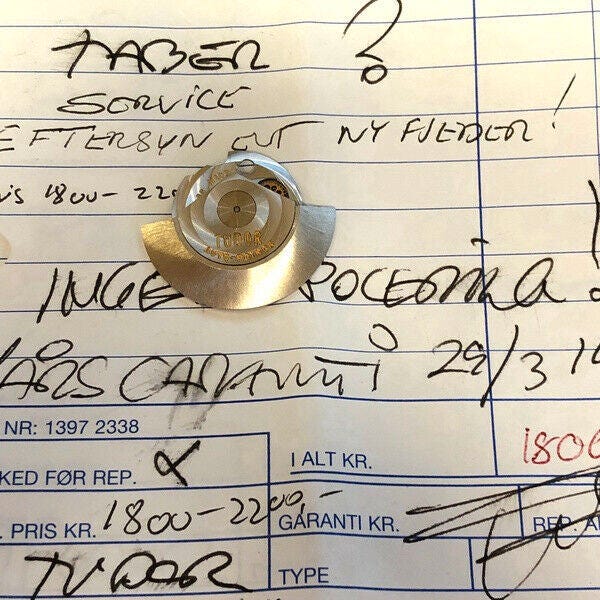 TABER ?
SERVICE
EFTERSYN EVT NY FJEDER!
1800-220
TUDOR
INGE
ÅRS GARANTI 29/3
NR: 1397 2338
KED FØR REP.
I ALT KR. 1800
PRIS KR. 1800-2200,-
GARANTI KR.
REP.
TUDOR
TYPE